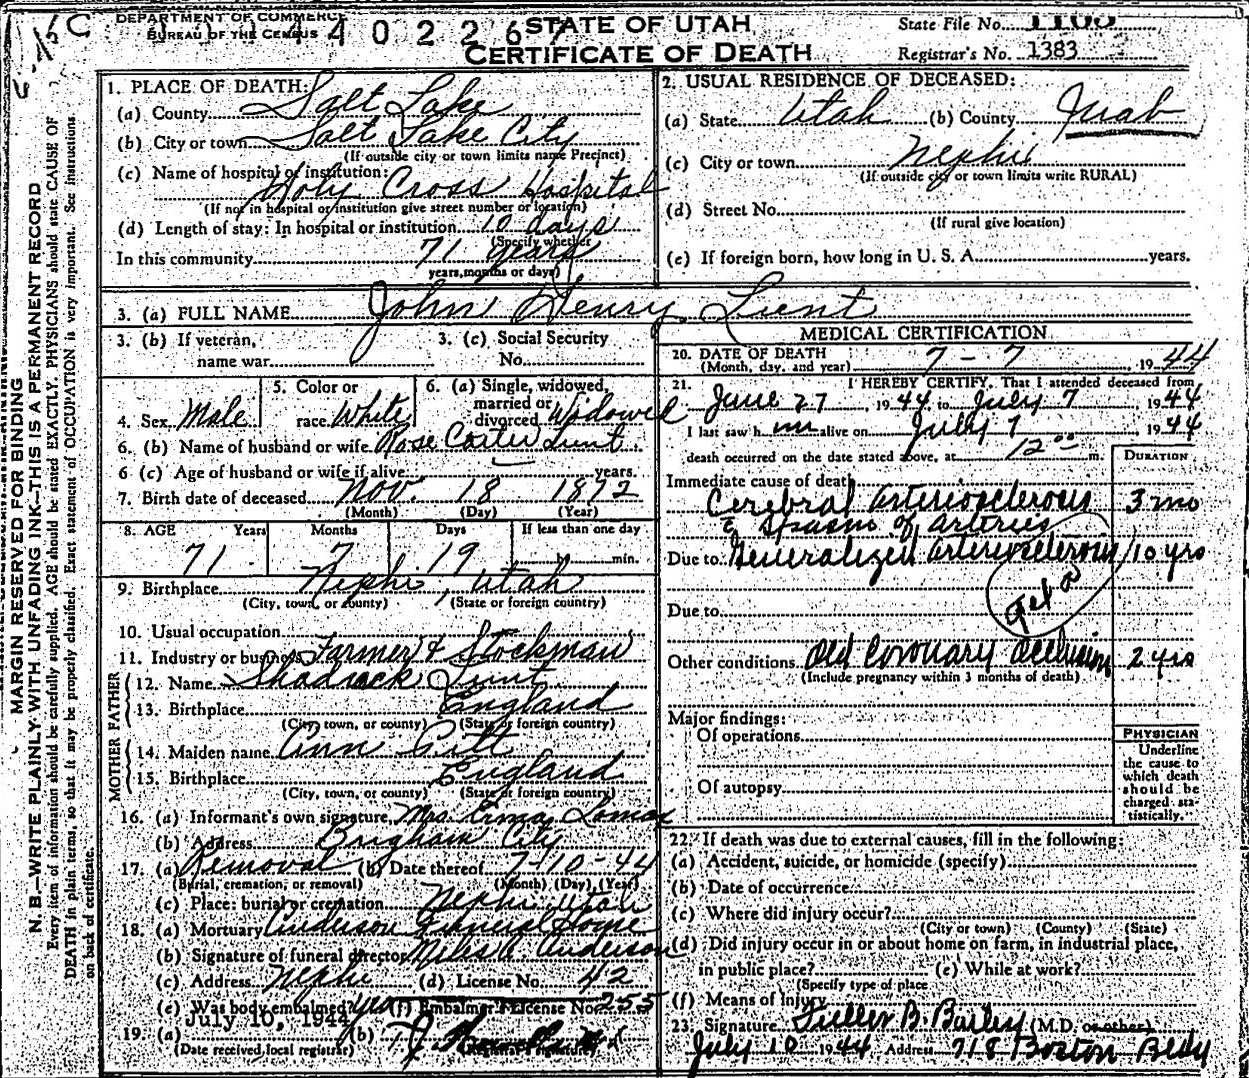 DEPARTMENT OF COMMERCE
BUREAU OF THE CENSUS
440226
STATE OF UTAH
CERTIFICATE OF DEATH
State File No.
Registrar's No. 1383
MARGIN RESERVED FOR BINDING
N. B.—WRITE PLAINLY WITH UNFADING INK—THIS IS A PERMANENT RECORD
Every item of information should be carefully supplied. AGE should be stated EXACTLY. PHYSICIANS should state CAUSE OF
DEATH in plain terms, so that it may be properly classified. Exact statement of OCCUPATION is very important. See instructions
on back of certificate.
1. PLACE OF DEATH:
(a) County Salt Lake
(b) City or town Salt Lake City
(If outside city or town limits name Precinct)
(c) Name of hospital or institution:
Holy Cross Hospital
(If not in hospital or institution give street number or location)
(d) Length of stay: In hospital or institution 10 days
(Specify whether
In this community 71 years
years, months or days)
2. USUAL RESIDENCE OF DECEASED:
(a) State Utah (b) County Juab
(c) City or town Nephi
(If outside city or town limits write RURAL)
(d) Street No.
(If rural give location)
(e) If foreign born, how long in U. S. A. years.
3. (a) FULL NAME John Henry Lunt
3. (b) If veteran,
name war
3. (c) Social Security
No.
4. Sex Male
5. Color or
race White
6. (a) Single, widowed,
married or
divorced Widowed
6. (b) Name of husband or wife Rose Carter Lunt
6 (c) Age of husband or wife if alive years.
7. Birth date of deceased Nov. 18 1872
(Month) (Day) (Year)
8. AGE Years Months Days If less than one day
71 7 19 h min.
9. Birthplace Nephi, Utah
(City, town, or county) (State or foreign country)
10. Usual occupation
11. Industry or business Farmer & Stockman
FATHER
12. Name Shadrack Lunt
13. Birthplace England
(City, town, or county) (State or foreign country)
MOTHER
14. Maiden name Ann Pitt
15. Birthplace England
(City, town, or county) (State or foreign country)
16. (a) Informant's own signature Mrs Erma Lomax
(b) Address Brigham City
17. (a) Removal (b) Date thereof 7-10-44
(Burial, cremation, or removal) (Month) (Day) (Year)
(c) Place: burial or cremation Nephi Utah
18. (a) Mortuary Anderson Funeral Home
(b) Signature of funeral director Miles A. Anderson
(c) Address Nephi (d) License No. 42
(e) Was body embalmed? yes (f) Embalmer's License No. 255
19. (a) July 10, 1944 (b)
(Date received local registrar) (Registrar's signature)
MEDICAL CERTIFICATION
20. DATE OF DEATH
(Month, day, and year) 7-7, 1944
21. I HEREBY CERTIFY, That I attended deceased from
June 27, 1944 to July 7, 1944
I last saw him alive on July 7 1944
death occurred on the date stated above, at 12 00 m.
DURATION
Immediate cause of death
Cerebral arteriosclerosis 3 mo
& spasm of arteries
Due to Generalized arteriosclerosis 10 yrs
Due to
Other conditions Old Coronary Occlusion 2 yrs
(Include pregnancy within 3 months of death)
Major findings:
Of operations
Of autopsy
PHYSICIAN
Underline
the cause to
which death
should be
charged sta-
tistically.
22. If death was due to external causes, fill in the following:
(a) Accident, suicide, or homicide (specify)
(b) Date of occurrence
(c) Where did injury occur?
(City or town) (County) (State)
(d) Did injury occur in or about home on farm, in industrial place,
in public place? (e) While at work?
(Specify type of place
(f) Means of Injury
23. Signature Fuller B. Bailey (M.D. or other)
July 10 1944 Address 718 Boston Bldg